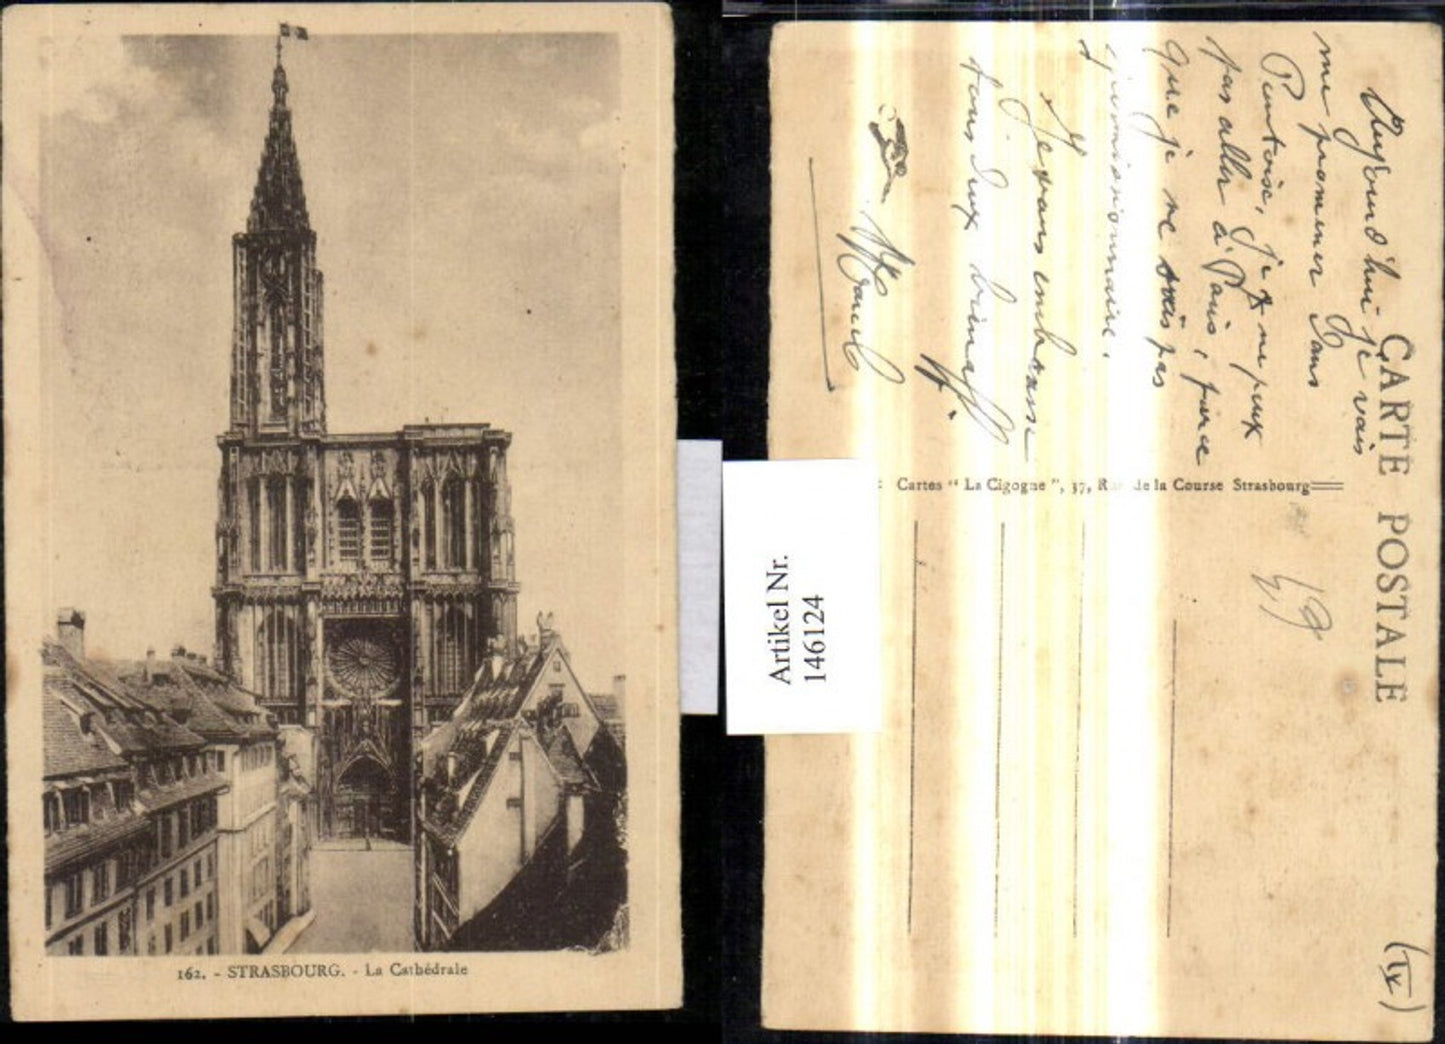 162. - STRASBOURG. - La Cathédrale
Artikel Nr.
146124
CARTE POSTALE
Cartes “ La Cigogne ”, 37, Rue de la Course Strasbourg
Aujourd'hui je vais
me promener dans
Pontoise, je ne peux
pas aller à Paris, parce
que je ne suis pas
permissionnaire.
Je vous embrasse
tous deux bien aff
Marcel
49
(IX)